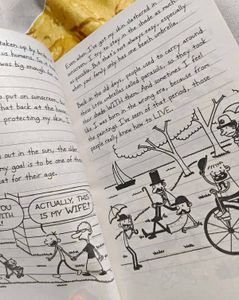 taken up by
humans. So
was big enough
put on sunscreen,
that back at the
protecting my skin, I
out in the sun, the older
my goal is to be one of
that for their age.
YOU
WITH
ACTUALLY, THIS
IS MY WIFE!
Even when I've got my skin slathered in
sunscreen, I try to stay in the shade as much
as possible. But that's not always easy, especially
when your family only has one beach umbrella.
Back in the old days, people used to carry around
these mini umbrellas called parasols, so they took
their shade WITH them. And sometimes I feel
like I was born in the wrong era, because from
the paintings I've seen of that period, those
people really knew how to LIVE.